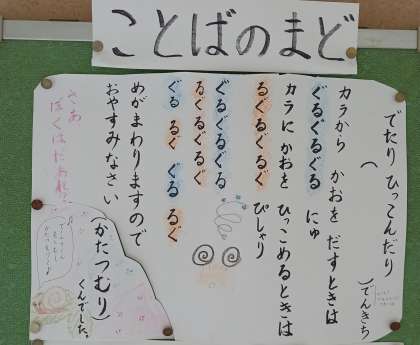 ことばのまど
でたり ひっこんだり
(　　　) でんきち
カラから かおを だすときは
ぐるぐるぐる にゅ
カラに かおを ひっこめるときは
るぐるぐるぐ ぴしゃり
ぐるぐるぐるぐ
るぐるぐるぐ
ぐる るぐ ぐる るぐ
めがまわりますので
おやすみなさい
さあ
ぼくはだあれ?
(かたつむり)
くんでした。